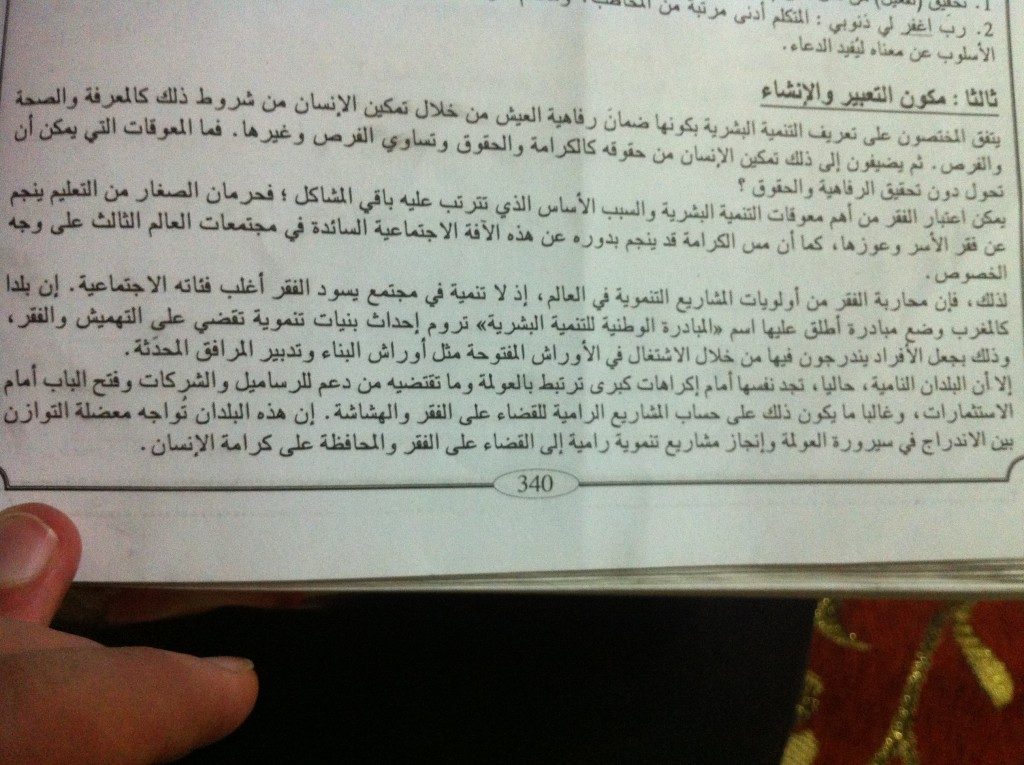 1. تحقيق
2. ربّ اغفر لي ذنوبي : المتكلم أدنى مرتبة من المخاطب،
الأسلوب عن معناه ليُفيد الدعاء.
ثالثا : مكون التعبير والإنشاء
يتفق المختصون على تعريف التنمية البشرية بكونها ضمانَ رفاهية العيش من خلال تمكين الإنسان من شروط ذلك كالمعرفة والصحة
والفرص. ثم يضيفون إلى ذلك تمكين الإنسان من حقوقه كالكرامة والحقوق وتساوي الفرص وغيرها. فما المعوقات التي يمكن أن
تحول دون تحقيق الرفاهية والحقوق ؟
يمكن اعتبار الفقر من أهم معوقات التنمية البشرية والسبب الأساس الذي تترتب عليه باقي المشاكل ؛ فحرمان الصغار من التعليم ينجم
عن فقر الأسر وعوزها، كما أن مس الكرامة قد ينجم بدوره عن هذه الآفة الاجتماعية السائدة في مجتمعات العالم الثالث على وجه
الخصوص.
لذلك، فإن محاربة الفقر من أولويات المشاريع التنموية في العالم، إذ لا تنمية في مجتمع يسود الفقر أغلب فئاته الاجتماعية. إن بلدا
كالمغرب وضع مبادرة أطلق عليها اسم «المبادرة الوطنية للتنمية البشرية» تروم إحداث بنيات تنموية تقضي على التهميش والفقر،
وذلك بجعل الأفراد يندرجون فيها من خلال الاشتغال في الأوراش المفتوحة مثل أوراش البناء وتدبير المرافق المحدَثة.
إلا أن البلدان النامية، حاليا، تجد نفسها أمام إكراهات كبرى ترتبط بالعولمة وما تقتضيه من دعم للرساميل والشركات وفتح الباب أمام
الاستثمارات، وغالبا ما يكون ذلك على حساب المشاريع الرامية للقضاء على الفقر والهشاشة. إن هذه البلدان تُواجه معضلة التوازن
بين الاندراج في سيرورة العولمة وإنجاز مشاريع تنموية رامية إلى القضاء على الفقر والمحافظة على كرامة الإنسان.
340